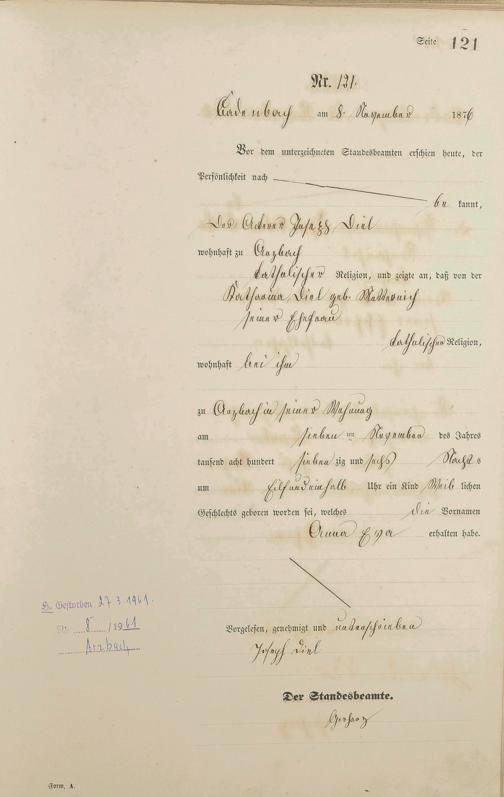 Seite 121
Nr. 121.
Cadenbach am 8. November 1876
Vor dem unterzeichneten Standesbeamten erschien heute, der
Persönlichkeit nach
be kannt,
Der Ackerer Joseph Diel
wohnhaft zu Arzbach
katholischer Religion, und zeigte an, daß von der
Katharina Diel geb. Metternich
seiner Ehefrau
katholischer Religion,
wohnhaft bei ihm
zu Arzbach in seiner Wohnung
am sieben ten November des Jahres
tausend acht hundert sieben zig und sechs Nachts
um Eilf und einhalb Uhr ein Kind Weib lichen
Geschlechts geboren worden sei, welches die Vornamen
Anna Eva erhalten habe.
Vorgelesen, genehmigt und unterschrieben
Joseph Diel
Der Standesbeamte.
H. Gestorben 27.3.1961.
Nr. 8 /1961
Arzbach
Form. A.